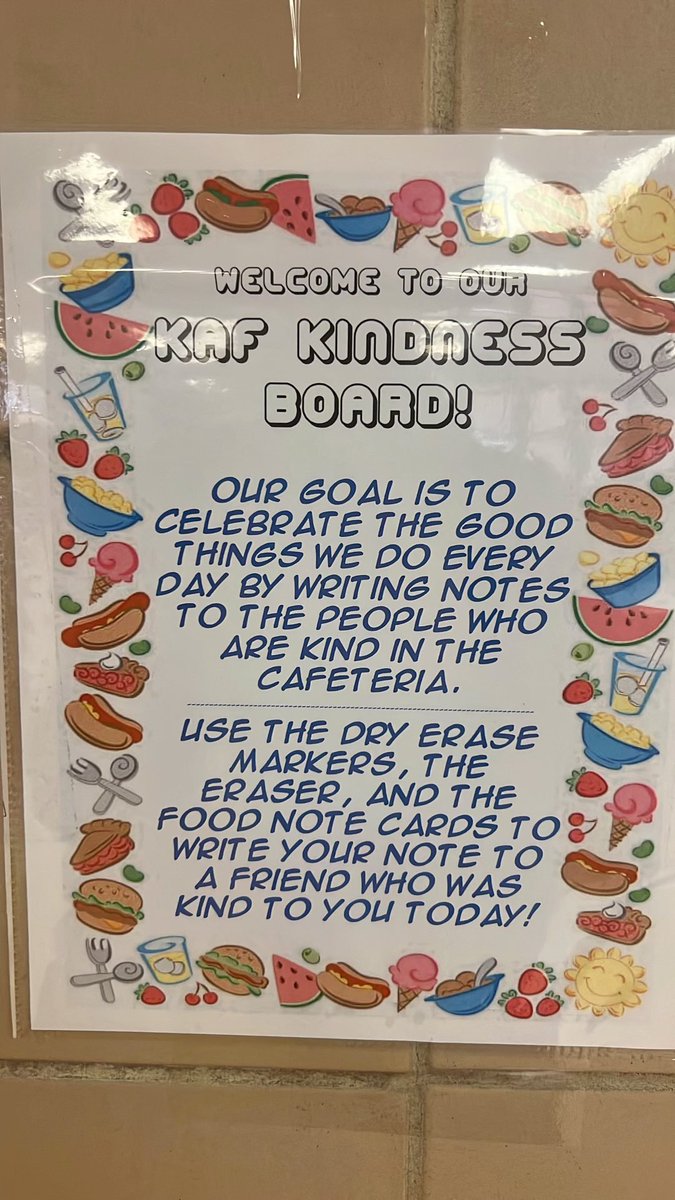 WELCOME TO OUR
KAF KINDNESS
BOARD!
OUR GOAL IS TO
CELEBRATE THE GOOD
THINGS WE DO EVERY
DAY BY WRITING NOTES
TO THE PEOPLE WHO
ARE KIND IN THE
CAFETERIA.
USE THE DRY ERASE
MARKERS, THE
ERASER, AND THE
FOOD NOTE CARDS TO
WRITE YOUR NOTE TO
A FRIEND WHO WAS
KIND TO YOU TODAY!